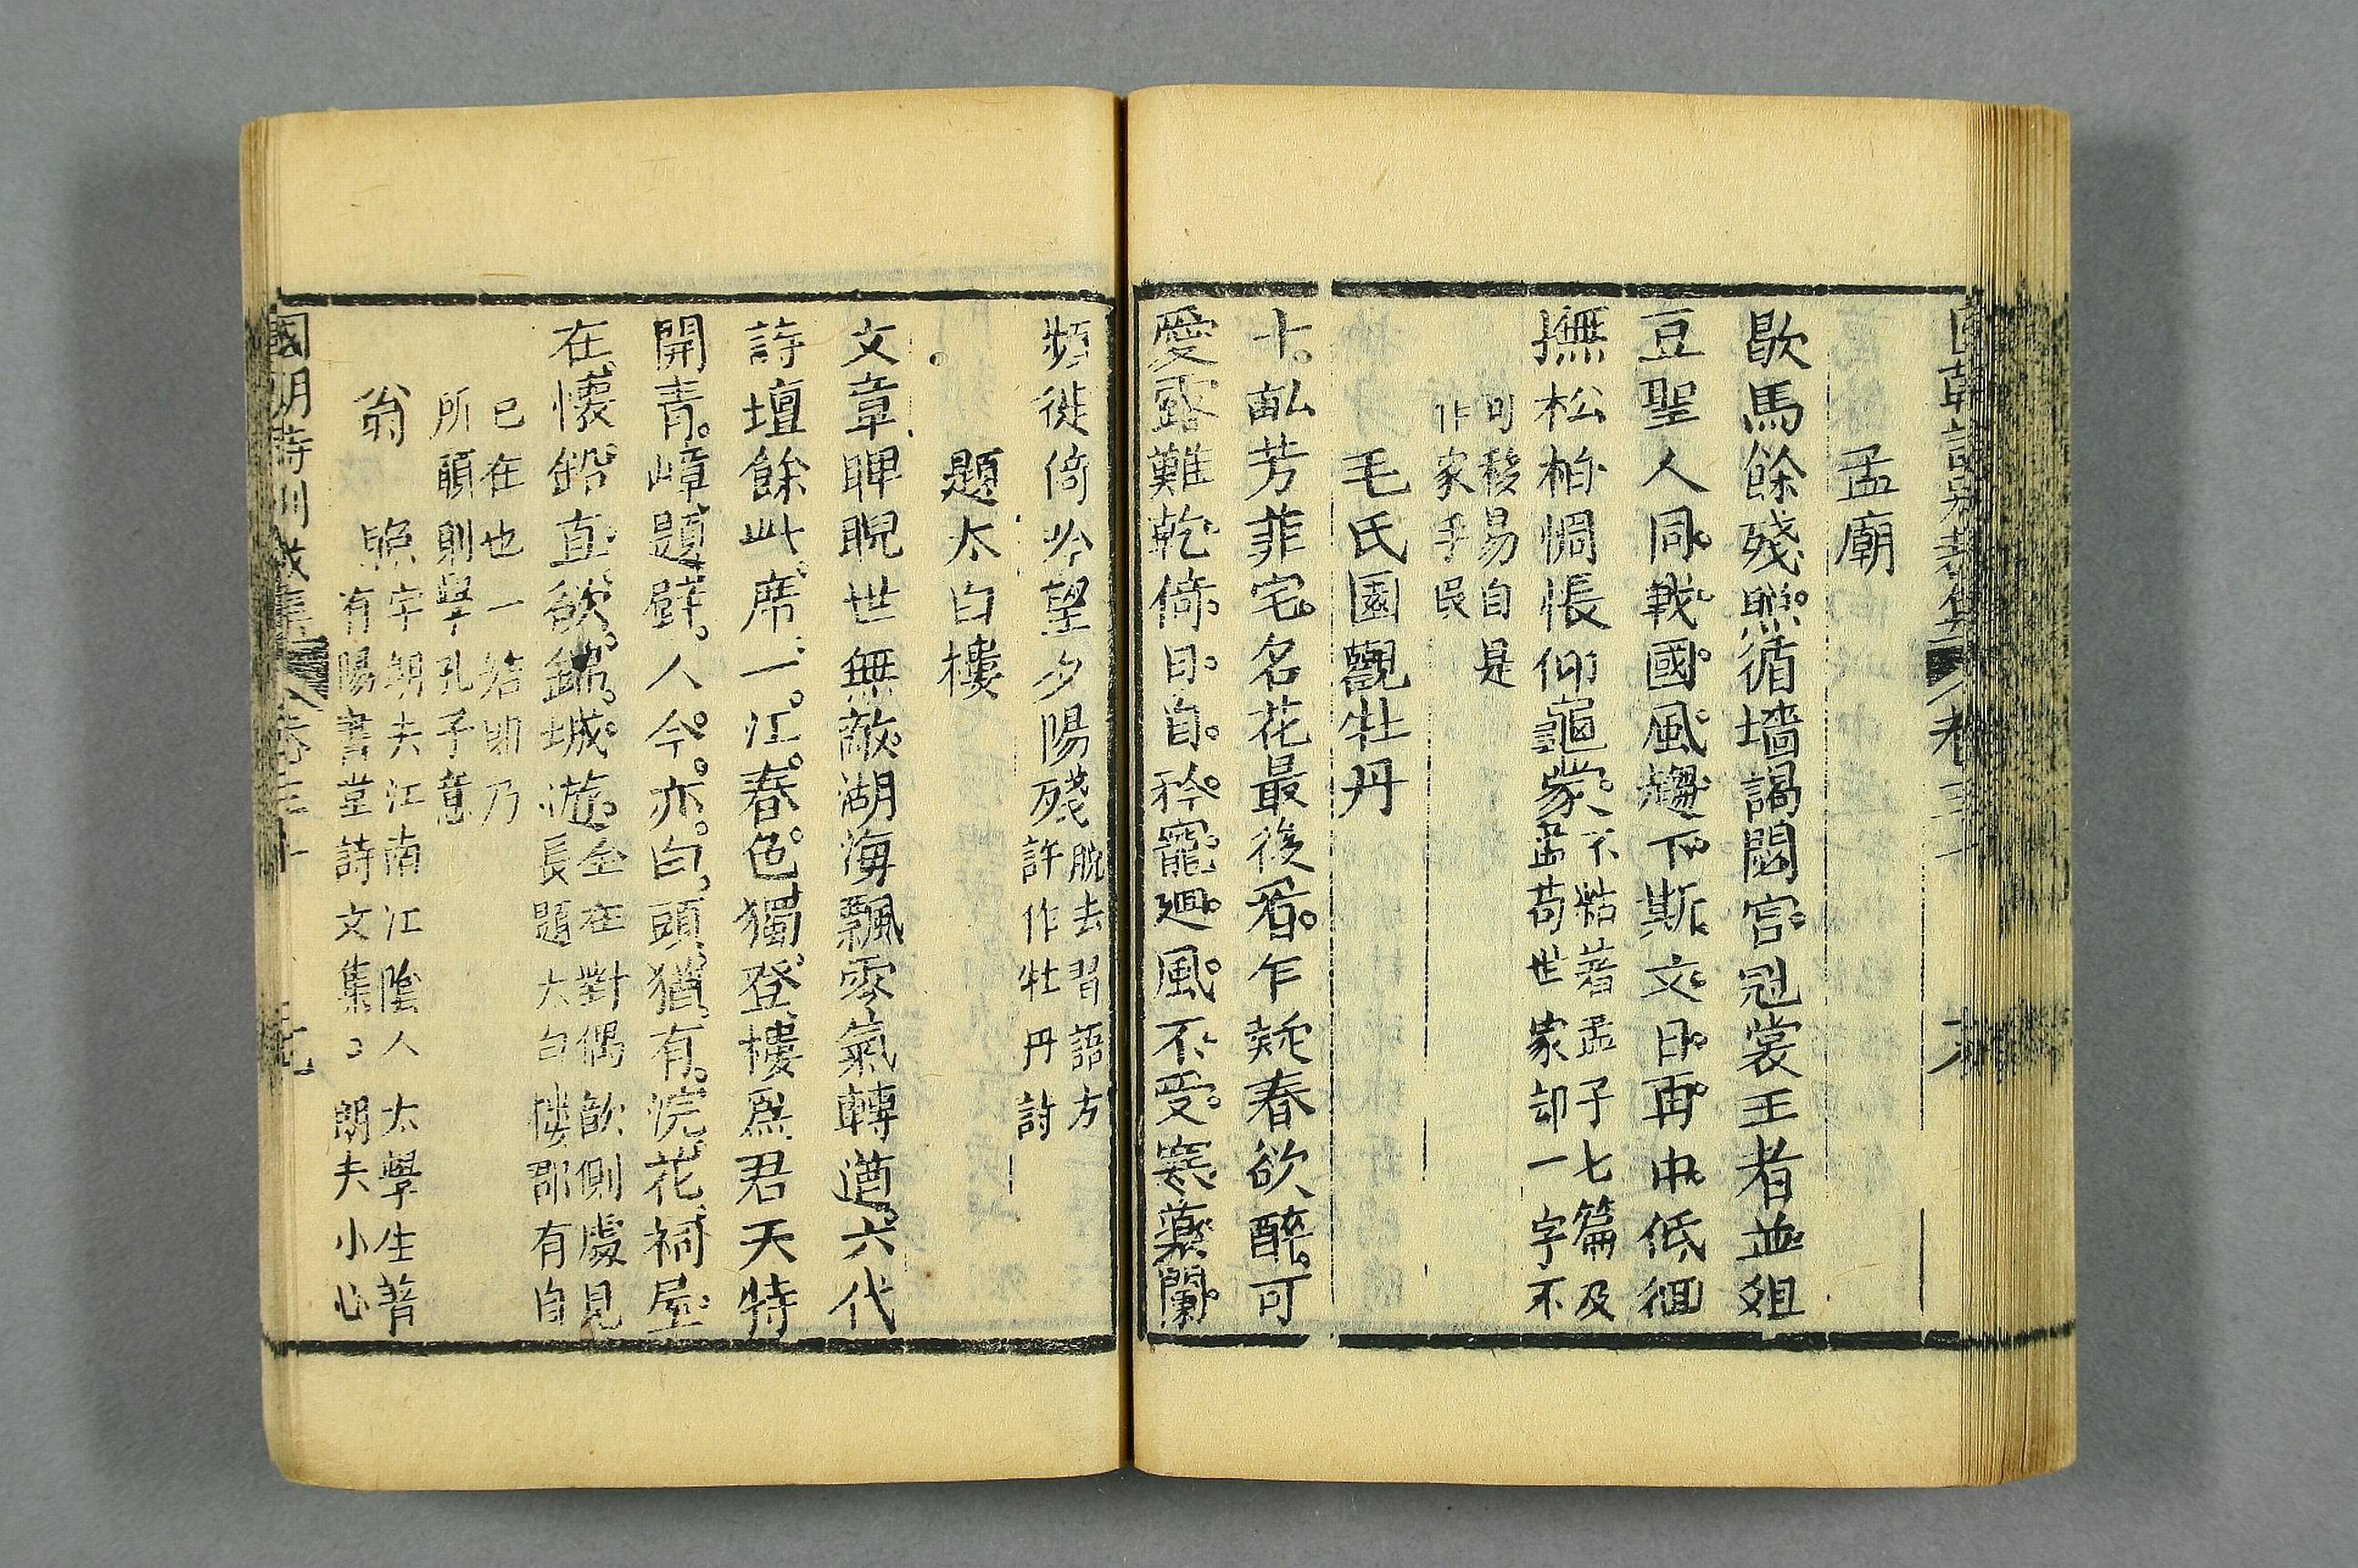 孟廟
歇馬餘殘照循墻謁閟宮冠裳王者並俎
豆聖人同戰國風趨下斯文日再中低徊
撫松柏惆悵仰龜蒙
不粘著孟子七篇及
孟荀世家却一字不
可移易自是
作家手㫒
毛氏園觀牡丹
十畝芳菲宅名花最後看乍疑春欲醉可
愛露難乾倚日自矜寵迴風不受寒藥闌
頻徙倚吟望夕陽殘
脫去習語方
許作牡丹詩
題太白樓
文章睥睨世無敵湖海飄零氣轉遒六代
詩壇餘此席一江春色獨登樓為君天特
開青嶂題壁人今亦白頭猶有浣花祠屋
在懷鉛直欲錦城遊
全在對偶歆側處見
長題太白樓郡有自
已在也一結即乃
所願則學孔子意
翁照
字朗夫江南江陰人太學生著
有陽書堂詩文集〻朗夫小心
國朝詩別裁集 卷三十